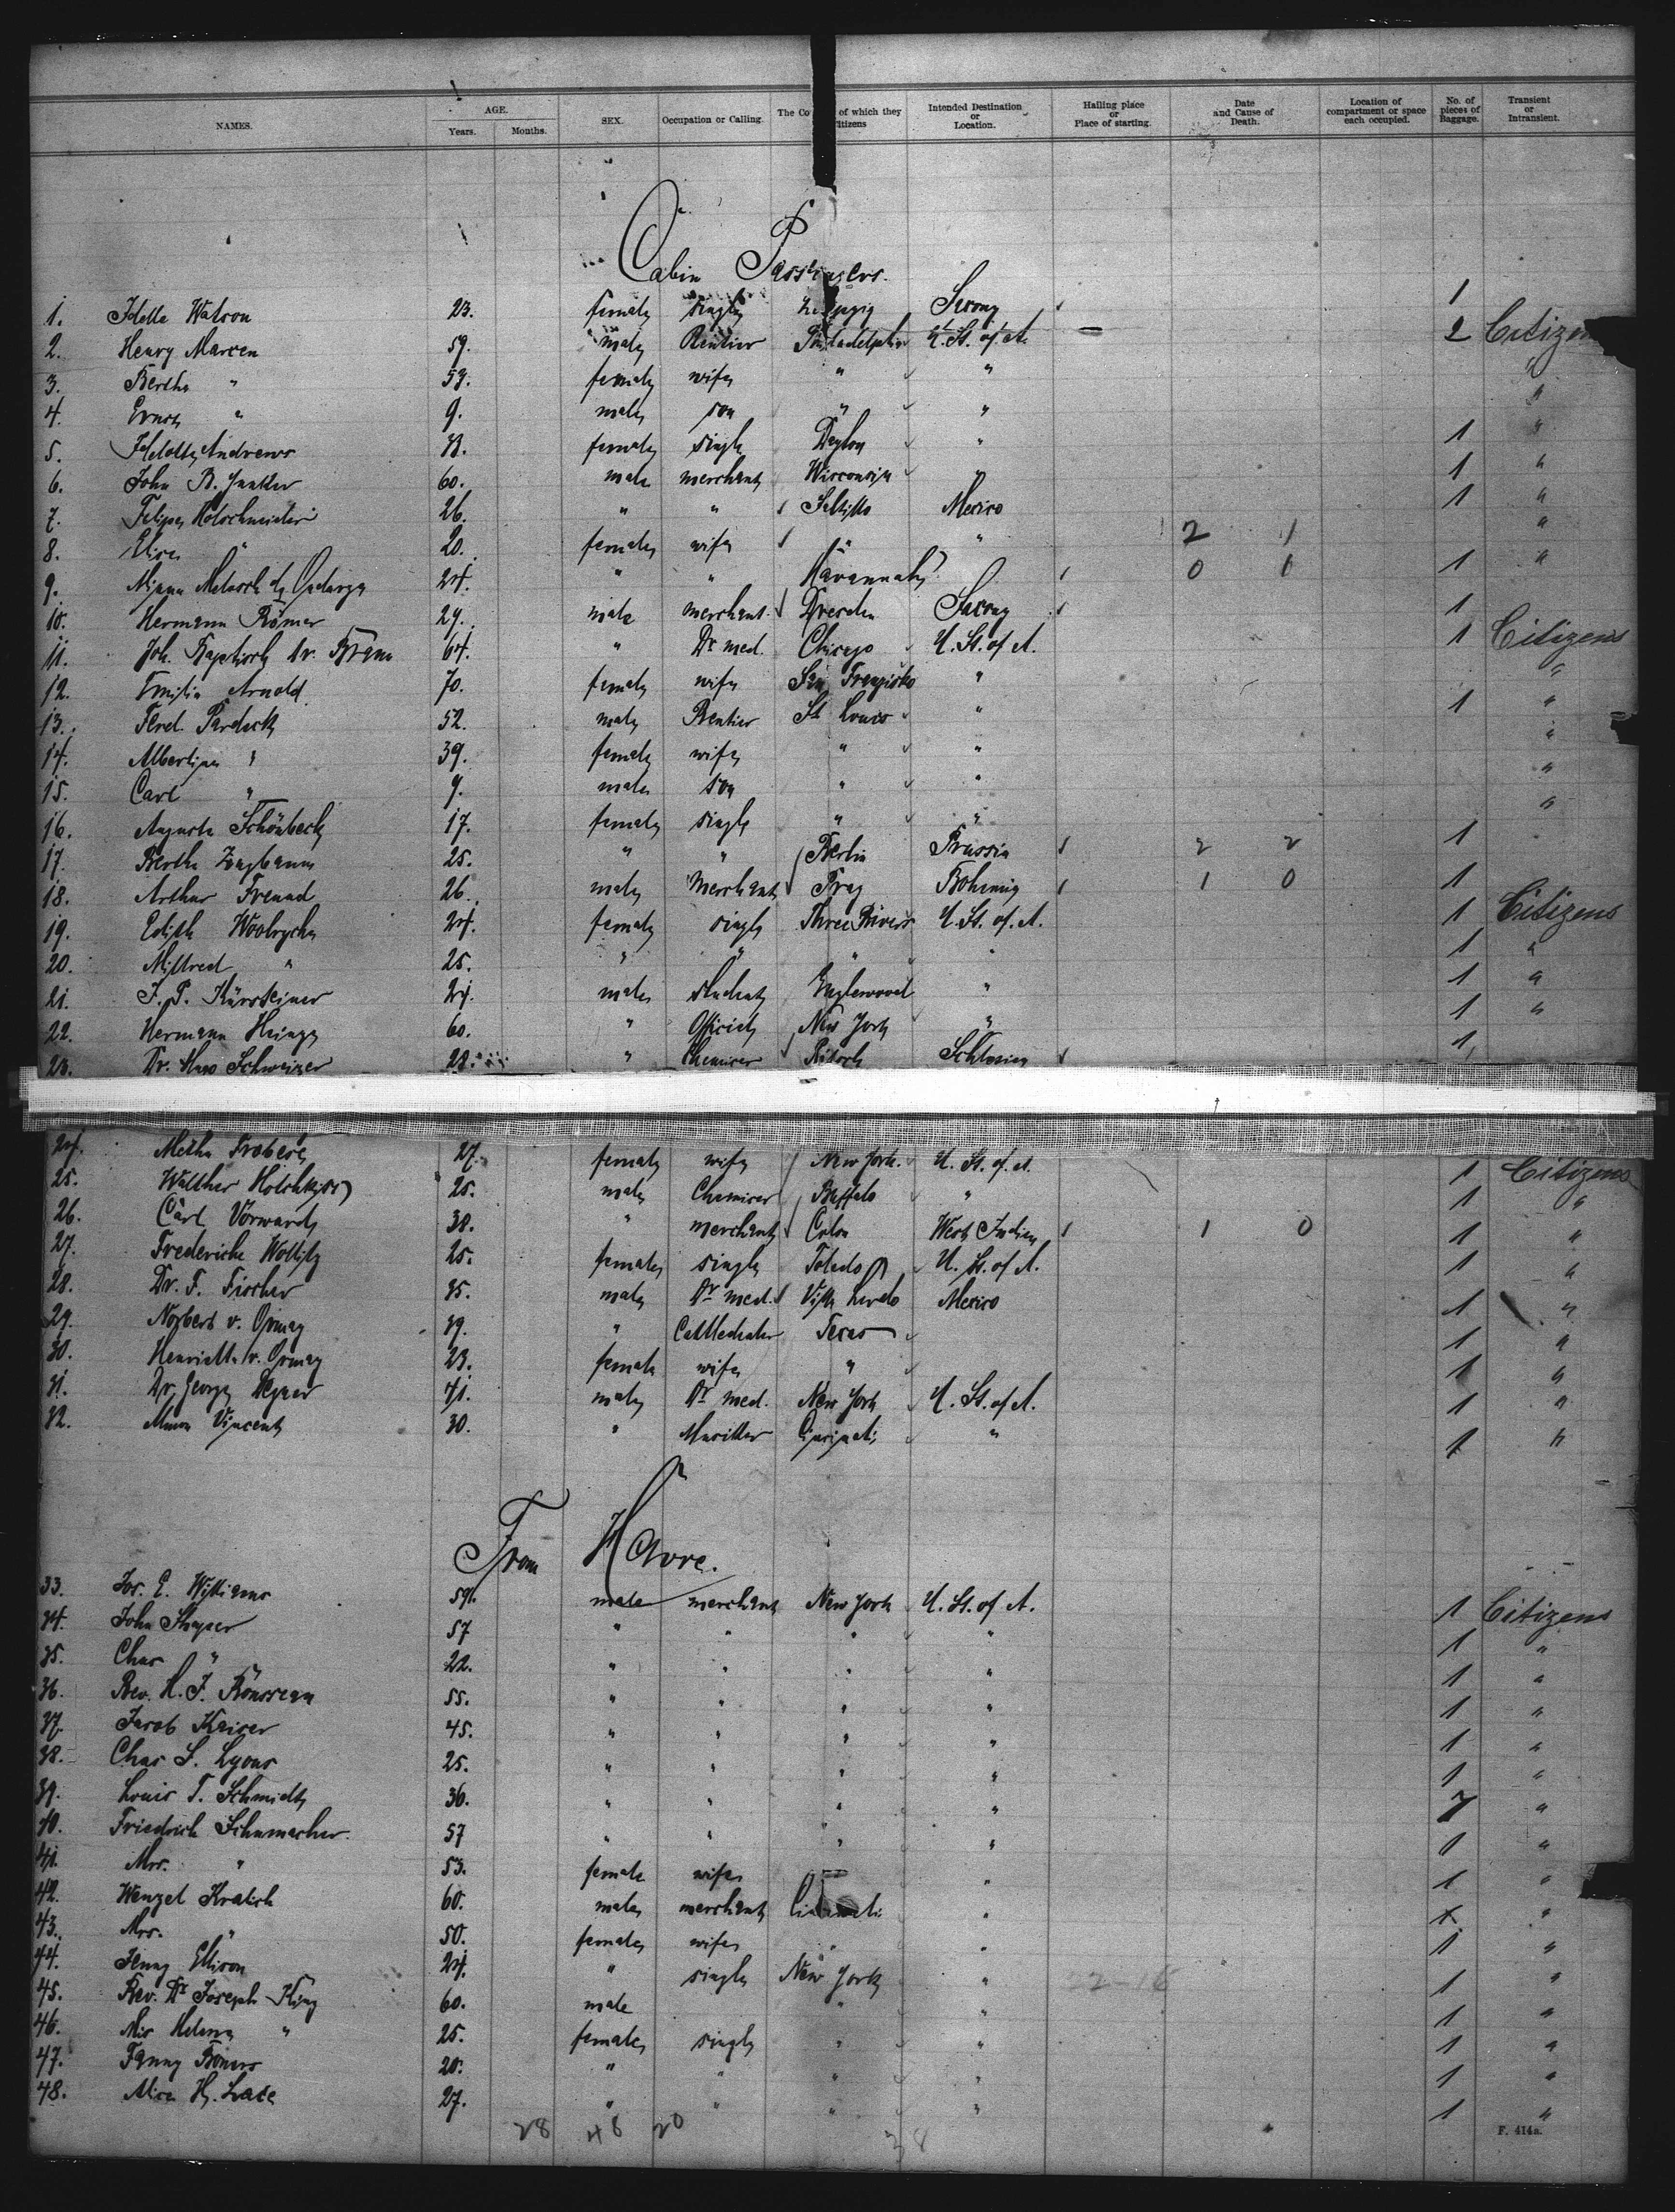 NAMES. AGE. Years. Months. SEX. Occupation or Calling. The Co of which they itizens Intended Destination or Location. Hailing place or Place of starting. Date and Cause of Death. Location of compartment or space each occupied. No. of pieces of Baggage. Transient or Intransient.
Cabin Passengers.
1. Idella Watson 23. female single Leipzig Saxony 1
2. Henry Marcen 59. male Rentier Philadelphia U. St. of A. 2 Citizens
3. Bertha " 53. female wife " " "
4. Ernst " 9. male son " " "
5. Andrews female single Dayton " 1 "
6. John B. 60. male merchant Wisconsin " 1 "
7. Felipe Holschneider 26. " " Saltillo Mexico 1 "
8. Elise " 20. female wife " " 2 1 "
9. 24. " " Havannah 0 0 1 "
10. Hermann Römer 29. male merchant Dresden Saxony 1
11. Joh. Baptisch Dr. 64. " Dr med. Chicago U. St. of A. 1 Citizens
12. Emilia Arnold 70. female wife San Franzisko " "
13. Ferd. Pardeck 52. male Rentier St Louis " 1 "
14. Albertine " 39. female wife " " "
15. Carl " 9. male son " " "
16. Auguste Schönbeck 17. female single " " "
17. Bertha 25. " " Berlin Prussia 2 2 1
18. Arthur Freund 26. male Merchant Prag Bohemia 1 0 1
19. Edith Woolrych 24. female single Three Rivers U. St. of A. 1 Citizens
20. Mildred " 25. " " " " 1 "
21. J. P. Kürsteiner 24. male student Englewood " 1 "
22. Hermann 60. " Official New York " 1 "
23. Dr. Hugo Schweizer 28. " Chemiker 1
24. Metha Froberé 27. female wife New York. U. St. of A. 1 Citizens
25. Walther Hotchkiss 25. male Chemiker Buffalo " 1 "
26. Carl Vorwarck 38. " merchant Colon West Indien 1 0 1 "
27. Frederiche 25. female single Toledo U. St. of A. 1 "
28. Dr. F. Fischer 35. male Dr med. Villa Lerdo Mexico 1 "
29. Norbert v. Ormay 39. " Texas 1 "
30. Henriette v. Ormay 23. female wife " 1 "
31. Dr. George Degner 41. male Dr med. New York U. St. of A. 1 "
32. Vincent 30. " Musiker " 1 "
From Havre.
33. Jos. E. Williams 59. male merchant New York U. St. of A. 1 Citizens
34. John Thayser 57 " " " " 1 "
35. Chas " 22. " " " " 1 "
36. Rev. H. J. 55. " " " " 1 "
37. Jacob Kaiser 45. " " " " 1 "
38. Chas S. Lyons 25. " " " " 1 "
39. Louis T. Schmidt 36. " " " " 7 "
40. Friedrich Schumacher 57 " " " " 1 "
41. Mrs. " 53. female wife " 1 "
42. Wenzel Kralich 60. male merchant " "
43. Mrs. " 50. female wife " " 1 "
44. Jenny Ellison 24. " single New York " 1 "
45. Rev. Dr Joseph King 60. male " " 1 "
46. Mis Helena " 25. female single " " 1 "
47. Fanny 20. " " " " 1 "
48. Alice H. Lace 27. " " " " 1 "
28 48 20 38
22-16
F. 414a.